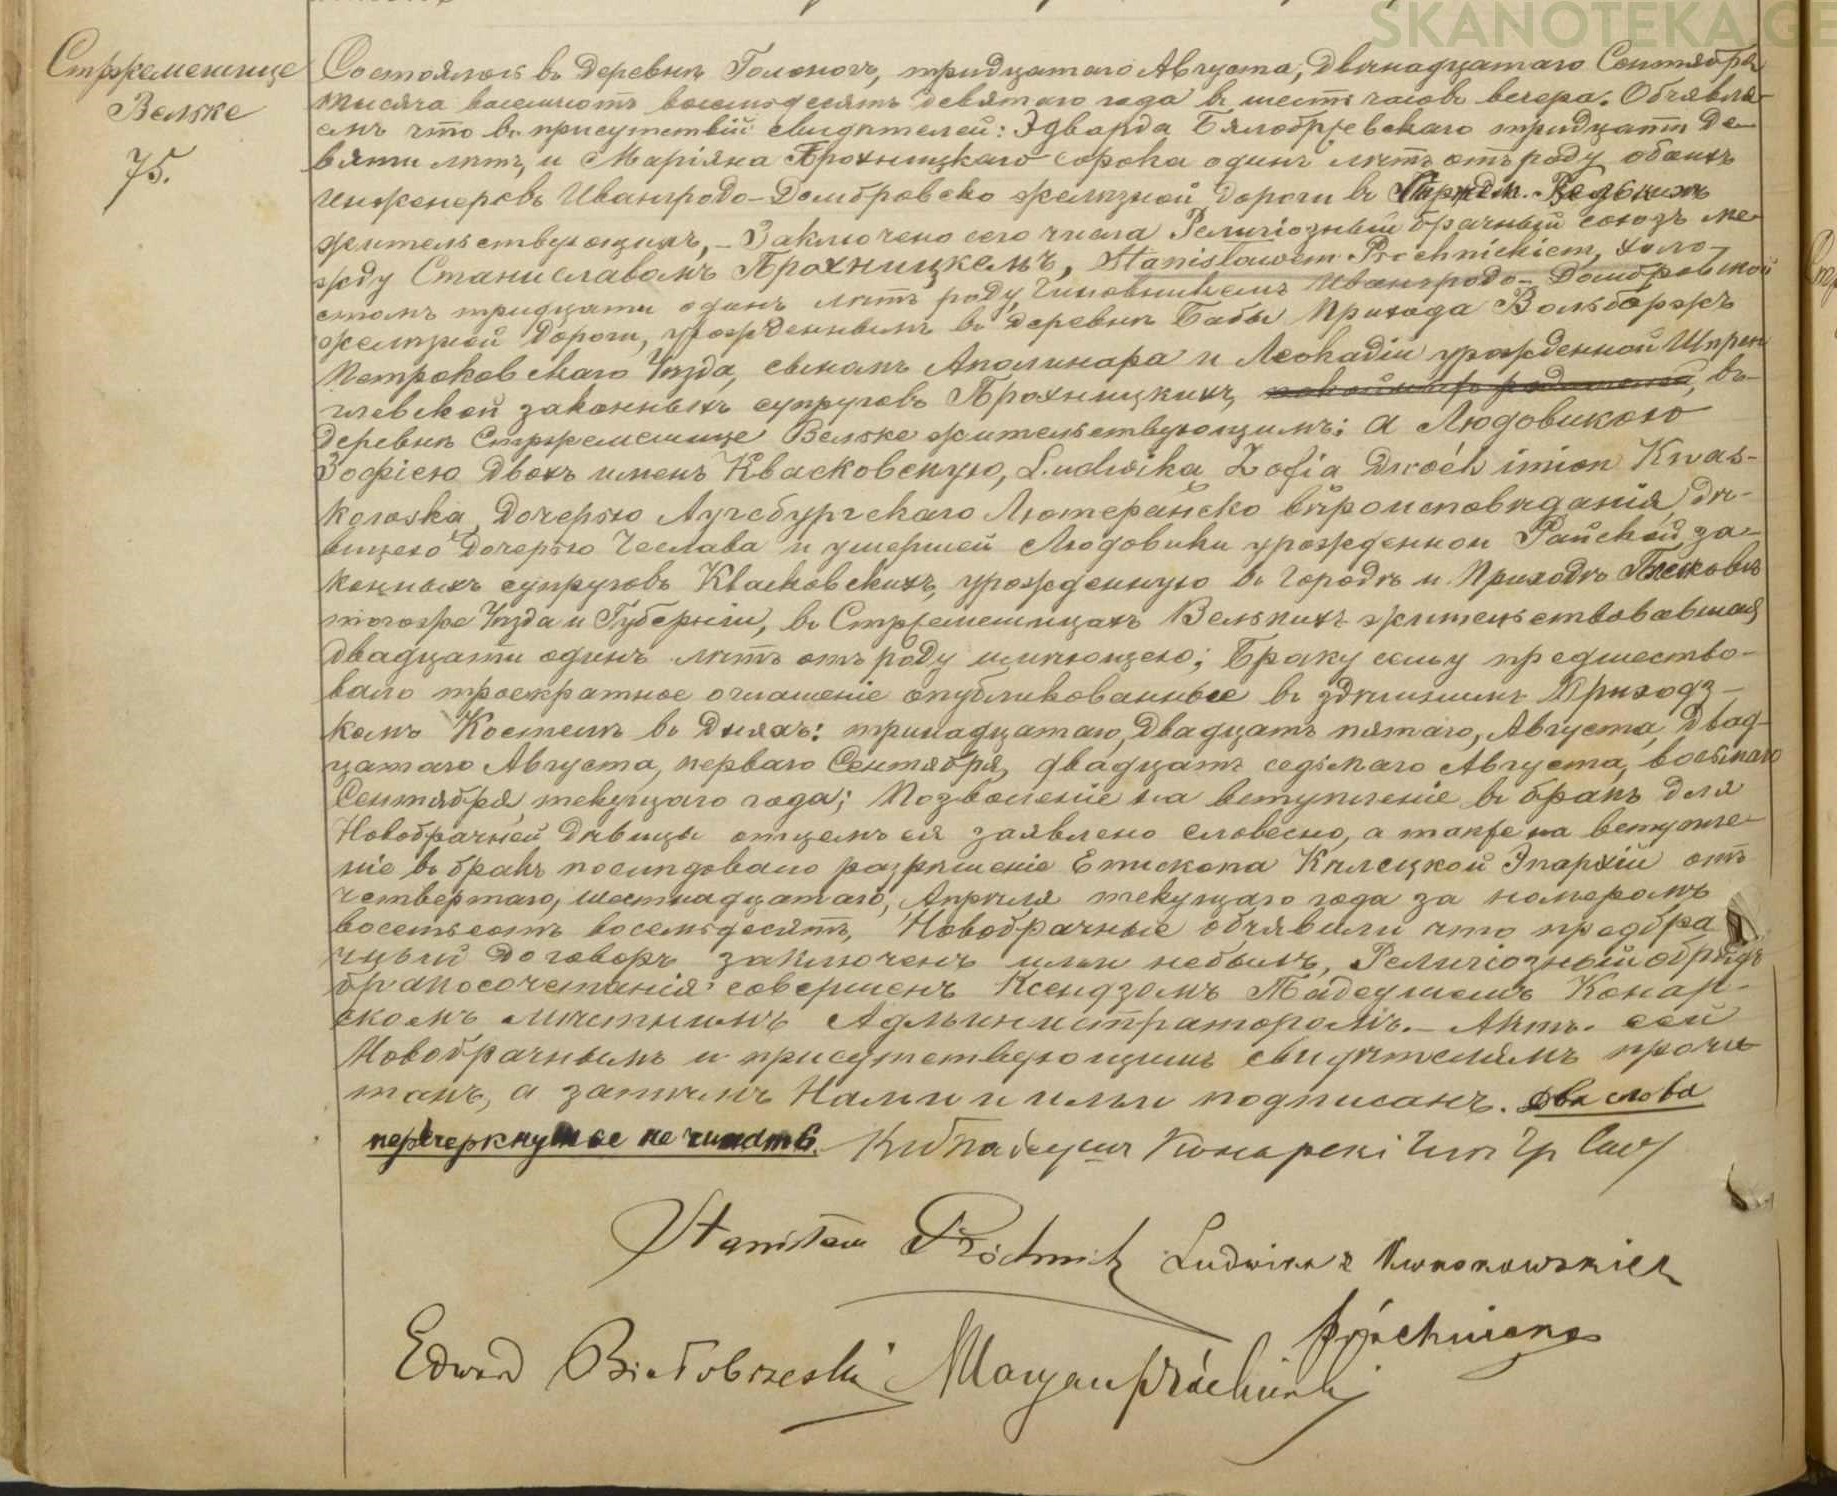 SKANOTEKA.GE
Стржемешице
Вельке
75.
Состоялось въ деревнѣ Голоногъ, тридцатаго Августа, двѣнадцатаго Сентября
тысяча восемьсотъ восемьдесятъ девятаго года въ шесть часовъ вечера. Объявля-
емъ что въ присутствіи свидѣтелей: Эдварда Бялобржевскаго тридцати де-
вяти лѣтъ, и Маріяна Прохницкаго сорока одинъ лѣтъ отъ роду обоихъ
инженеровъ Ивангродо-Домбровско желѣзной дороги въ Стржем. Велькихъ
жительствующихъ, - Заключено сего числа Религіозный брачный союзъ ме-
жду Станиславомъ Прохницкемъ, Stanisławem Próchnickiem, холо-
стымъ тридцати одинъ лѣтъ роду, Чиновникемъ Ивангродо-Домбровской
желѣзной дороги, урожденнымъ въ деревнѣ Бабы Прихода Вольборжъ
Петроковскаго Уѣзда, сыномъ Аполинара и Леокадіи урожденной Шпрен
глевской законныхъ супруговъ Прохницкихъ, въ
деревнѣ Стржемешице Вельке жительствующимъ; а Людовикою
Зофіею двохъ именъ Квасковскую, Ludwika Zofia Dwóch imion Kwas-
kowska, дочерью Аугсбургскаго Лютеранско вѣроисповѣданія, дѣ-
вицею дочерью Чеслава и умершей Людовики урожденной Райской за-
конныхъ супруговъ Квасковскихъ, урожденную въ городѣ и Приходѣ
тогоже Уѣзда и Губерніи, въ Стржемешицахъ Велькихъ жительствовавшая
двадцати одинъ лѣтъ отъ роду имѣющею; Браку сему предшество-
вало троекратное оглашеніе опубликованные въ здѣшнимъ Приход-
комъ Костелѣ въ дняхъ: тринадцатаго, двадцать пятаго, Августа, двад-
цатаго Августа, перваго Сентября, двадцать седьмаго Августа, восьмаго
Сентября, текущаго года; Позволеніе на вступленіе въ бракъ для
Новобрачней дѣвицы отцемъ ея заявлено словесно, а также на вступле-
ніе въ бракъ послѣдовало разрѣшеніе Епископа Кѣлецкой Эпархіи отъ
четвертаго, шестнадцатаго, Апрѣля текущаго года за номеромъ
восемьсотъ восемьдесятъ, Новобрачные объявили что предбра
чный договоръ заключенъ ими небылъ, Религіозный обрядъ
бракосочетанія совершенъ Ксендзомъ Тадеушемъ Конар-
скомъ мѣстнымъ Администраторомъ. - Актъ сей
Новобрачнымъ и присутствующимъ свидѣтелямъ прочи
танъ, а затѣмъ Нами и ими подписанъ. два слова
перечеркнутые не читать. Тадеушъ Конарскі
Stanisław Próchnicki Ludwika z Kwaskowskich
Próchnicka
Edward Białobrzeski Maryan Próchnicki